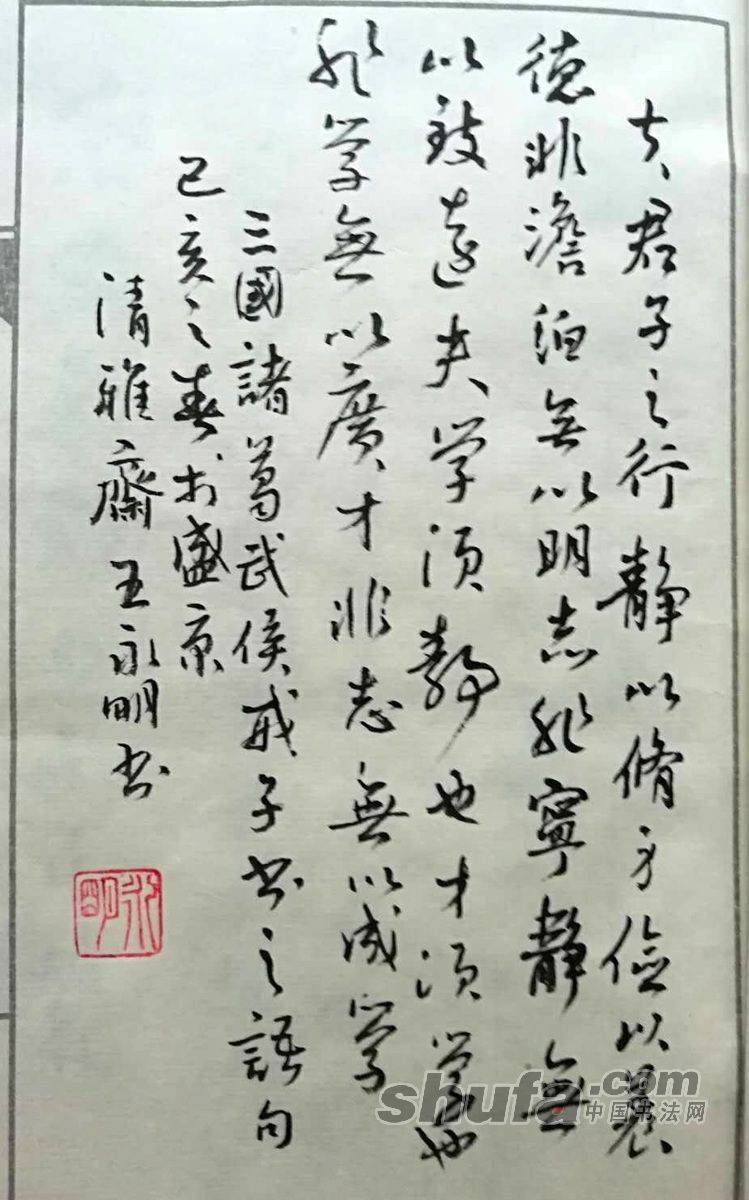 夫君子之行静以脩身儉以養
德非澹泊無以明志非寧静無
以致遠夫学須静也才須学也
非学無以廣才非志無以成学
三國諸葛武侯戒子书之語句
己亥之春于盛京
清雅齋王永明书
永明
shufa.com
中国书法网